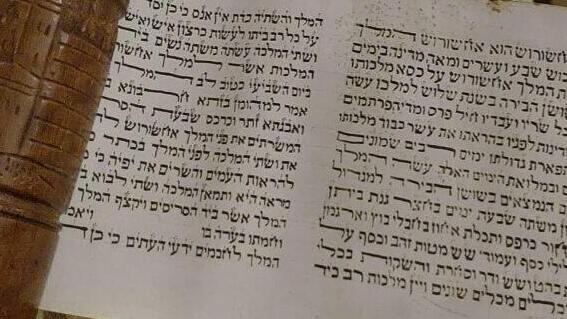 שורוש הוא אחשורוש המלך
כוש שבע ועשרים ומאה מדינה בימים
המלך אחשורוש על כסא מלכותו
שושן הבירה בשנת שלוש למלכו עשה
שריו ועבדיו חיל פרס ומדי הפרתמים
מדינות לפניו בהראתו את עשר כבוד מלכותו
תפארת גדולתו ימים רבים שמונים
ובמלואת הימים האלה עשה המלך
הנמצאים בשושן הבירה למגדול
משתה שבעת ימים בחצר גנת ביתן
חור כרפס ותכלת אחוז בחבלי בוץ וארגמן
לילי כסף ועמודי שש מטות זהב וכסף על
בהט ושש ודר וסחרת והשקות בכלי
מכלים שונים ויין מלכות רב כיד
המלך והשתיה כדת אין אנס כי כן יסד
על כל רב ביתו לעשות כרצון איש ואיש
ושתי המלכה עשתה משתה נשים בית
המלכות אשר למלך אחשורוש
ביום השביעי כטוב לב המלך
אמר למהומן בזתא חרבונא
ואבגתא זתר וכרכס שבעת הסר
המשרתים את פני המלך אחשורוש
את ושתי המלכה לפני המלך בכתר
להראות העמים והשרים את יפיה כי
מראה היא ותמאן המלכה ושתי לבוא
המלך אשר ביד הסריסים ויקצף המלך
וחמתו בערה בו ויאמ
המלך לחכמים ידעי העתים כי כן